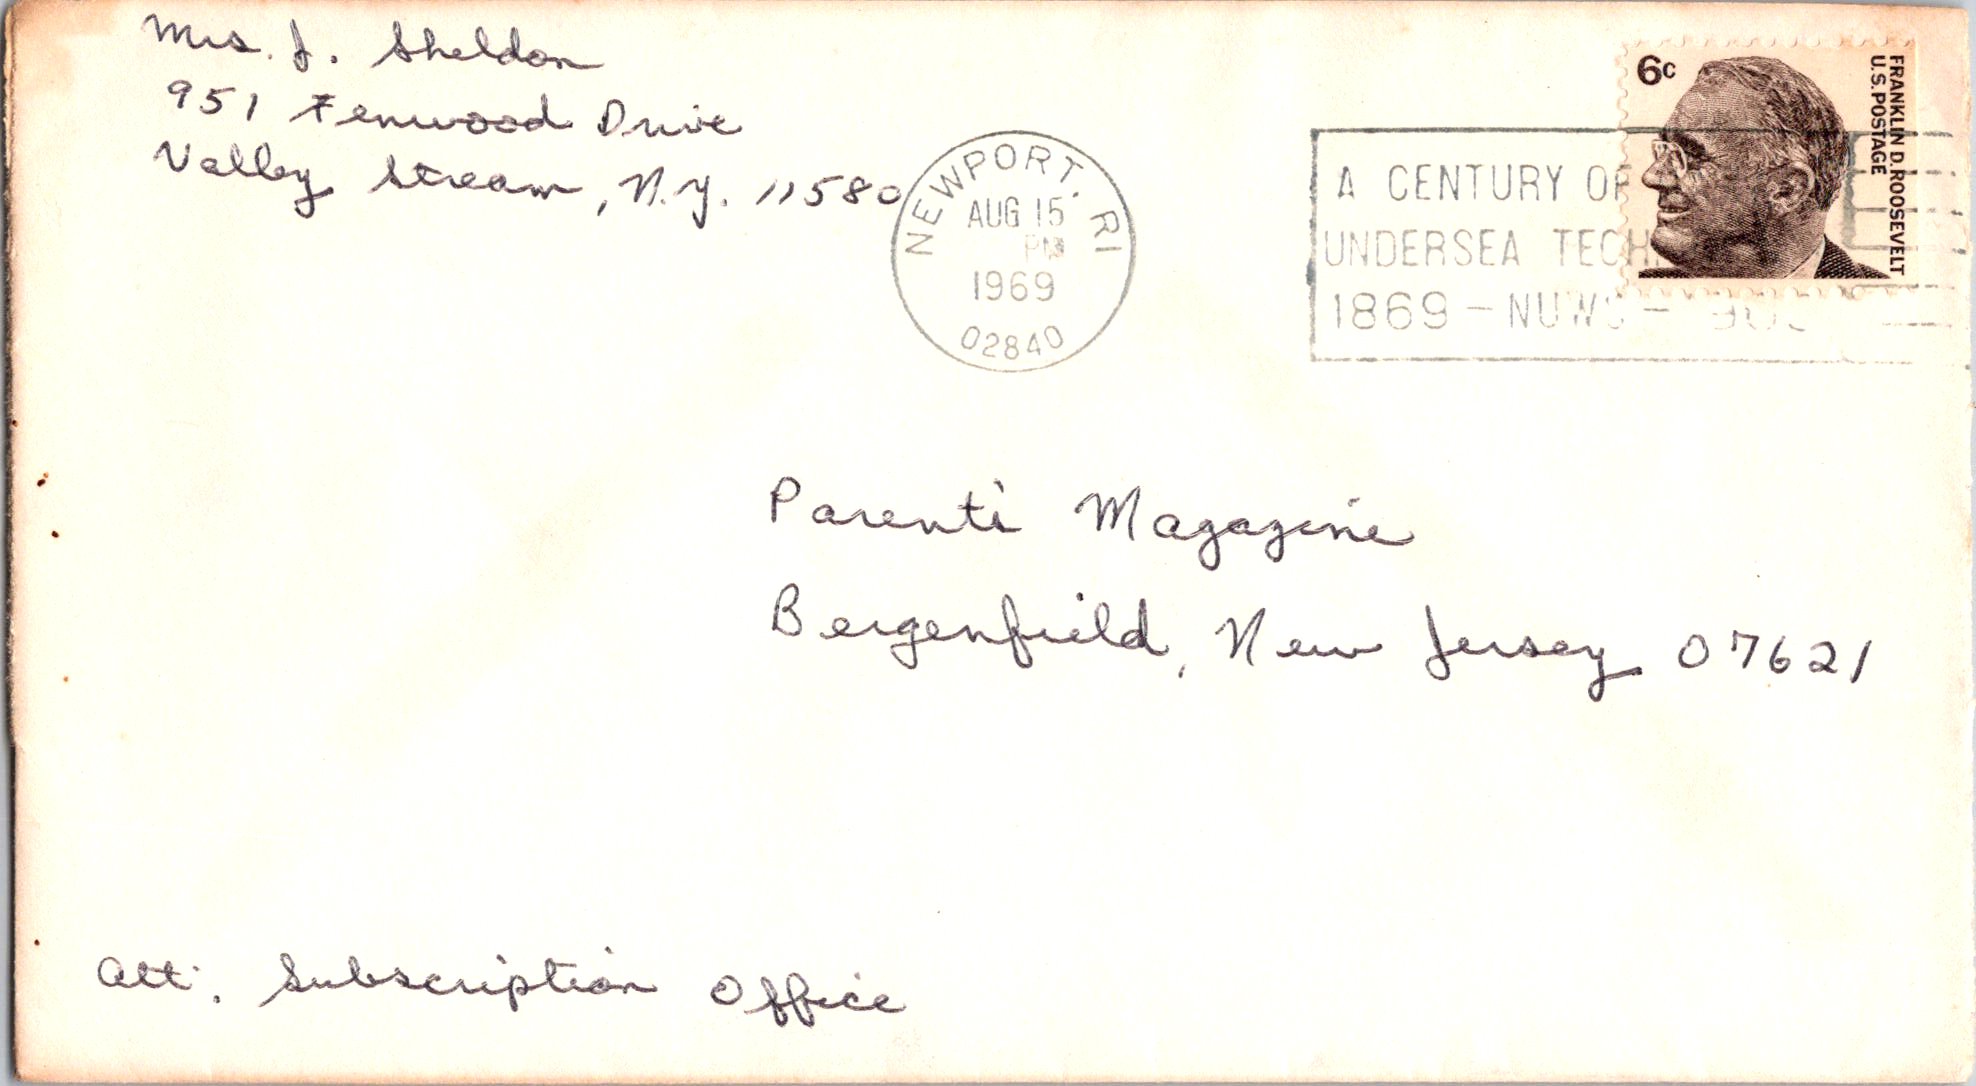 Mrs. J. Sheldon
951 Fenwood Drive
Valley Stream, N.Y. 11580
NEWPORT, RI
AUG 15
PM
1969
02840
A CENTURY OF
UNDERSEA TECH
1869 - NUWS -
6c
FRANKLIN D. ROOSEVELT
U.S. POSTAGE
Parents Magazine
Bergenfield, New Jersey 07621
Att: Subscription Office